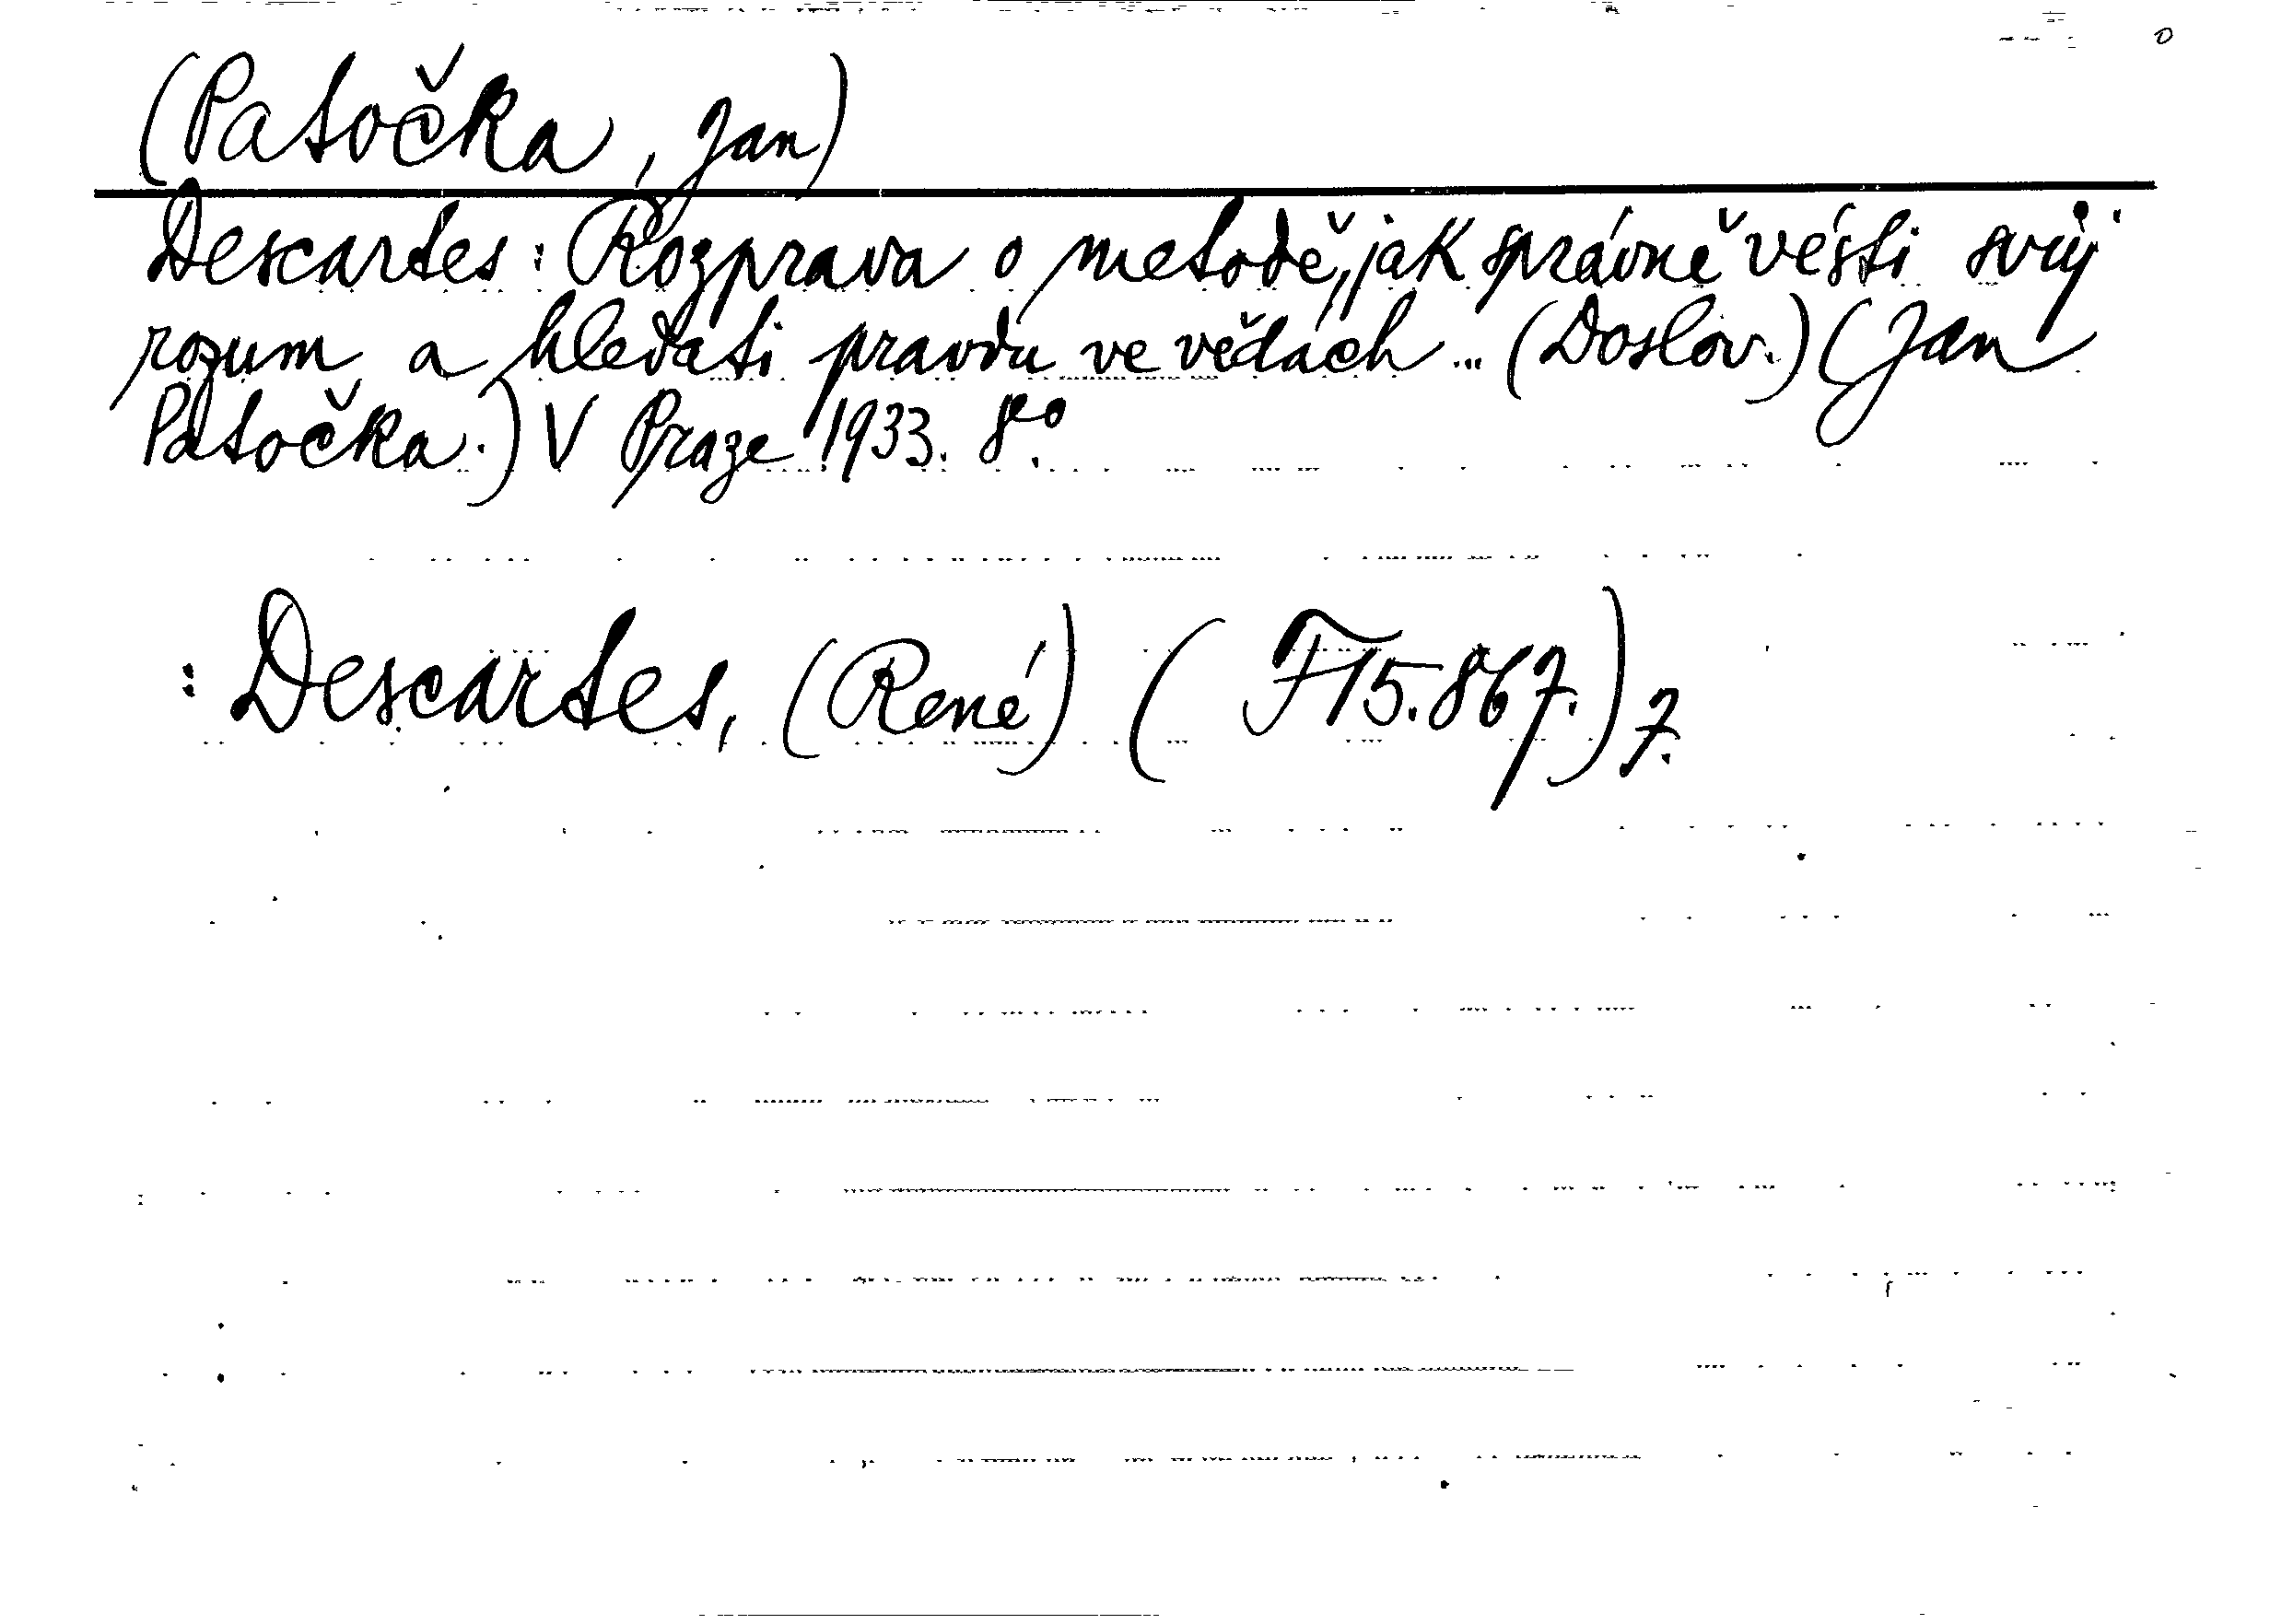 (Patočka, Jan)
Descartes: Rozprava o metodě, jak správně vésti svůj
rozum a hledati pravdu ve vědách ... (Doslov.) (Jan
Patočka.) V Praze 1933. 8°.
: Descartes, (René) (F 15.867.) 7.